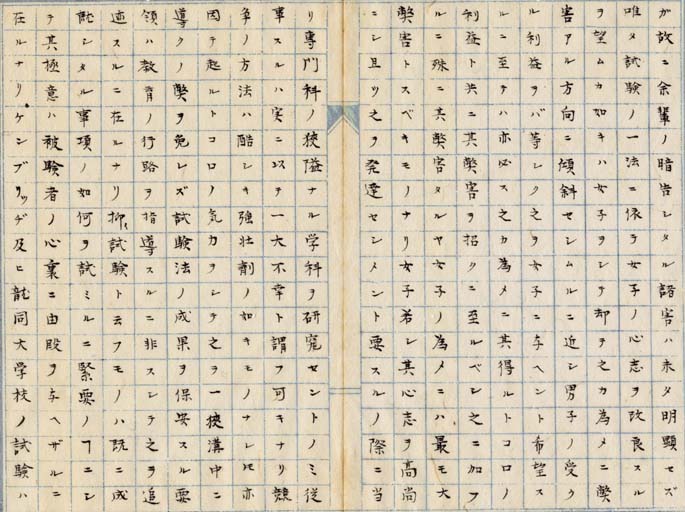 カ故ニ余輩ノ暗告シタル諸害ハ未タ明顕セズ
唯タ試験ノ一法ニ依テ女子ノ心志ヲ改良スル
ヲ望ムカ如キハ女子ヲシテ却テ之カ為メニ弊
害アル方向ニ傾斜セシムルニ近シ男子ノ受ク
ル利益ヲバ等シク之ヲ女子ニ与ヘント希望ス
ルニ至テハ亦必ス之カ為メニ其得ルトコロノ
利益ト共ニ其弊害ヲ招クニ至ルベシ之ニ加フ
ルニ殊ニ其弊害タルヤ女子ノ為メニハ最モ大
弊害トスベキモノナリ女子若シ其心志ヲ高尚
ニシ且ツ之ヲ発達セシメント要スルノ際ニ当
リ専門科ノ狭隘ナル学科ヲ研究セントノミ従
事スルハ実ニ以テ一大不幸ト謂フ可キナリ競
争ノ方法ハ酷シキ強壮剤ノ如キモノナレ𪜈亦
因テ起ルトコロノ気力ヲシテ之ヲ一狭溝中ニ
導クノ弊ヲ免レズ試験法ノ成果ヲ保安スル要
領ハ教育ノ行路ヲ指導スルニ非スシテ之ヲ追
迹スルニ在ルナリ抑試験ト云フモノハ既ニ成
就シタル事項ノ如何ヲ試ミルニ緊要ノヿニシ
テ其極意ハ被験者ノ心裏ニ由段ヲ与ヘザルニ
在ルナリケンブリッヂ及ヒ龍同大学校ノ試験ハ